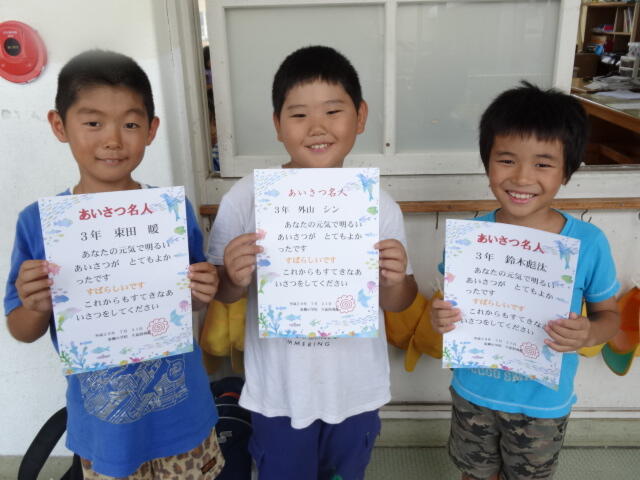 あいさつ名人
3年 東田 暖
あなたの元気で明るい
あいさつが とてもよか
ったです
すばらしいです
これからもすてきなあ
いさつをしてください
あいさつ名人
3年 外山 シン
あなたの元気で明るい
あいさつが とてもよか
ったです
すばらしいです
これからもすてきな
あいさつをしてください
あいさつ名人
3年 鈴木彪汰
あなたの元気で明るい
あいさつが とてもよか
ったです
すばらしいです
これからもすてきなあ
いさつをしてください
MMERING